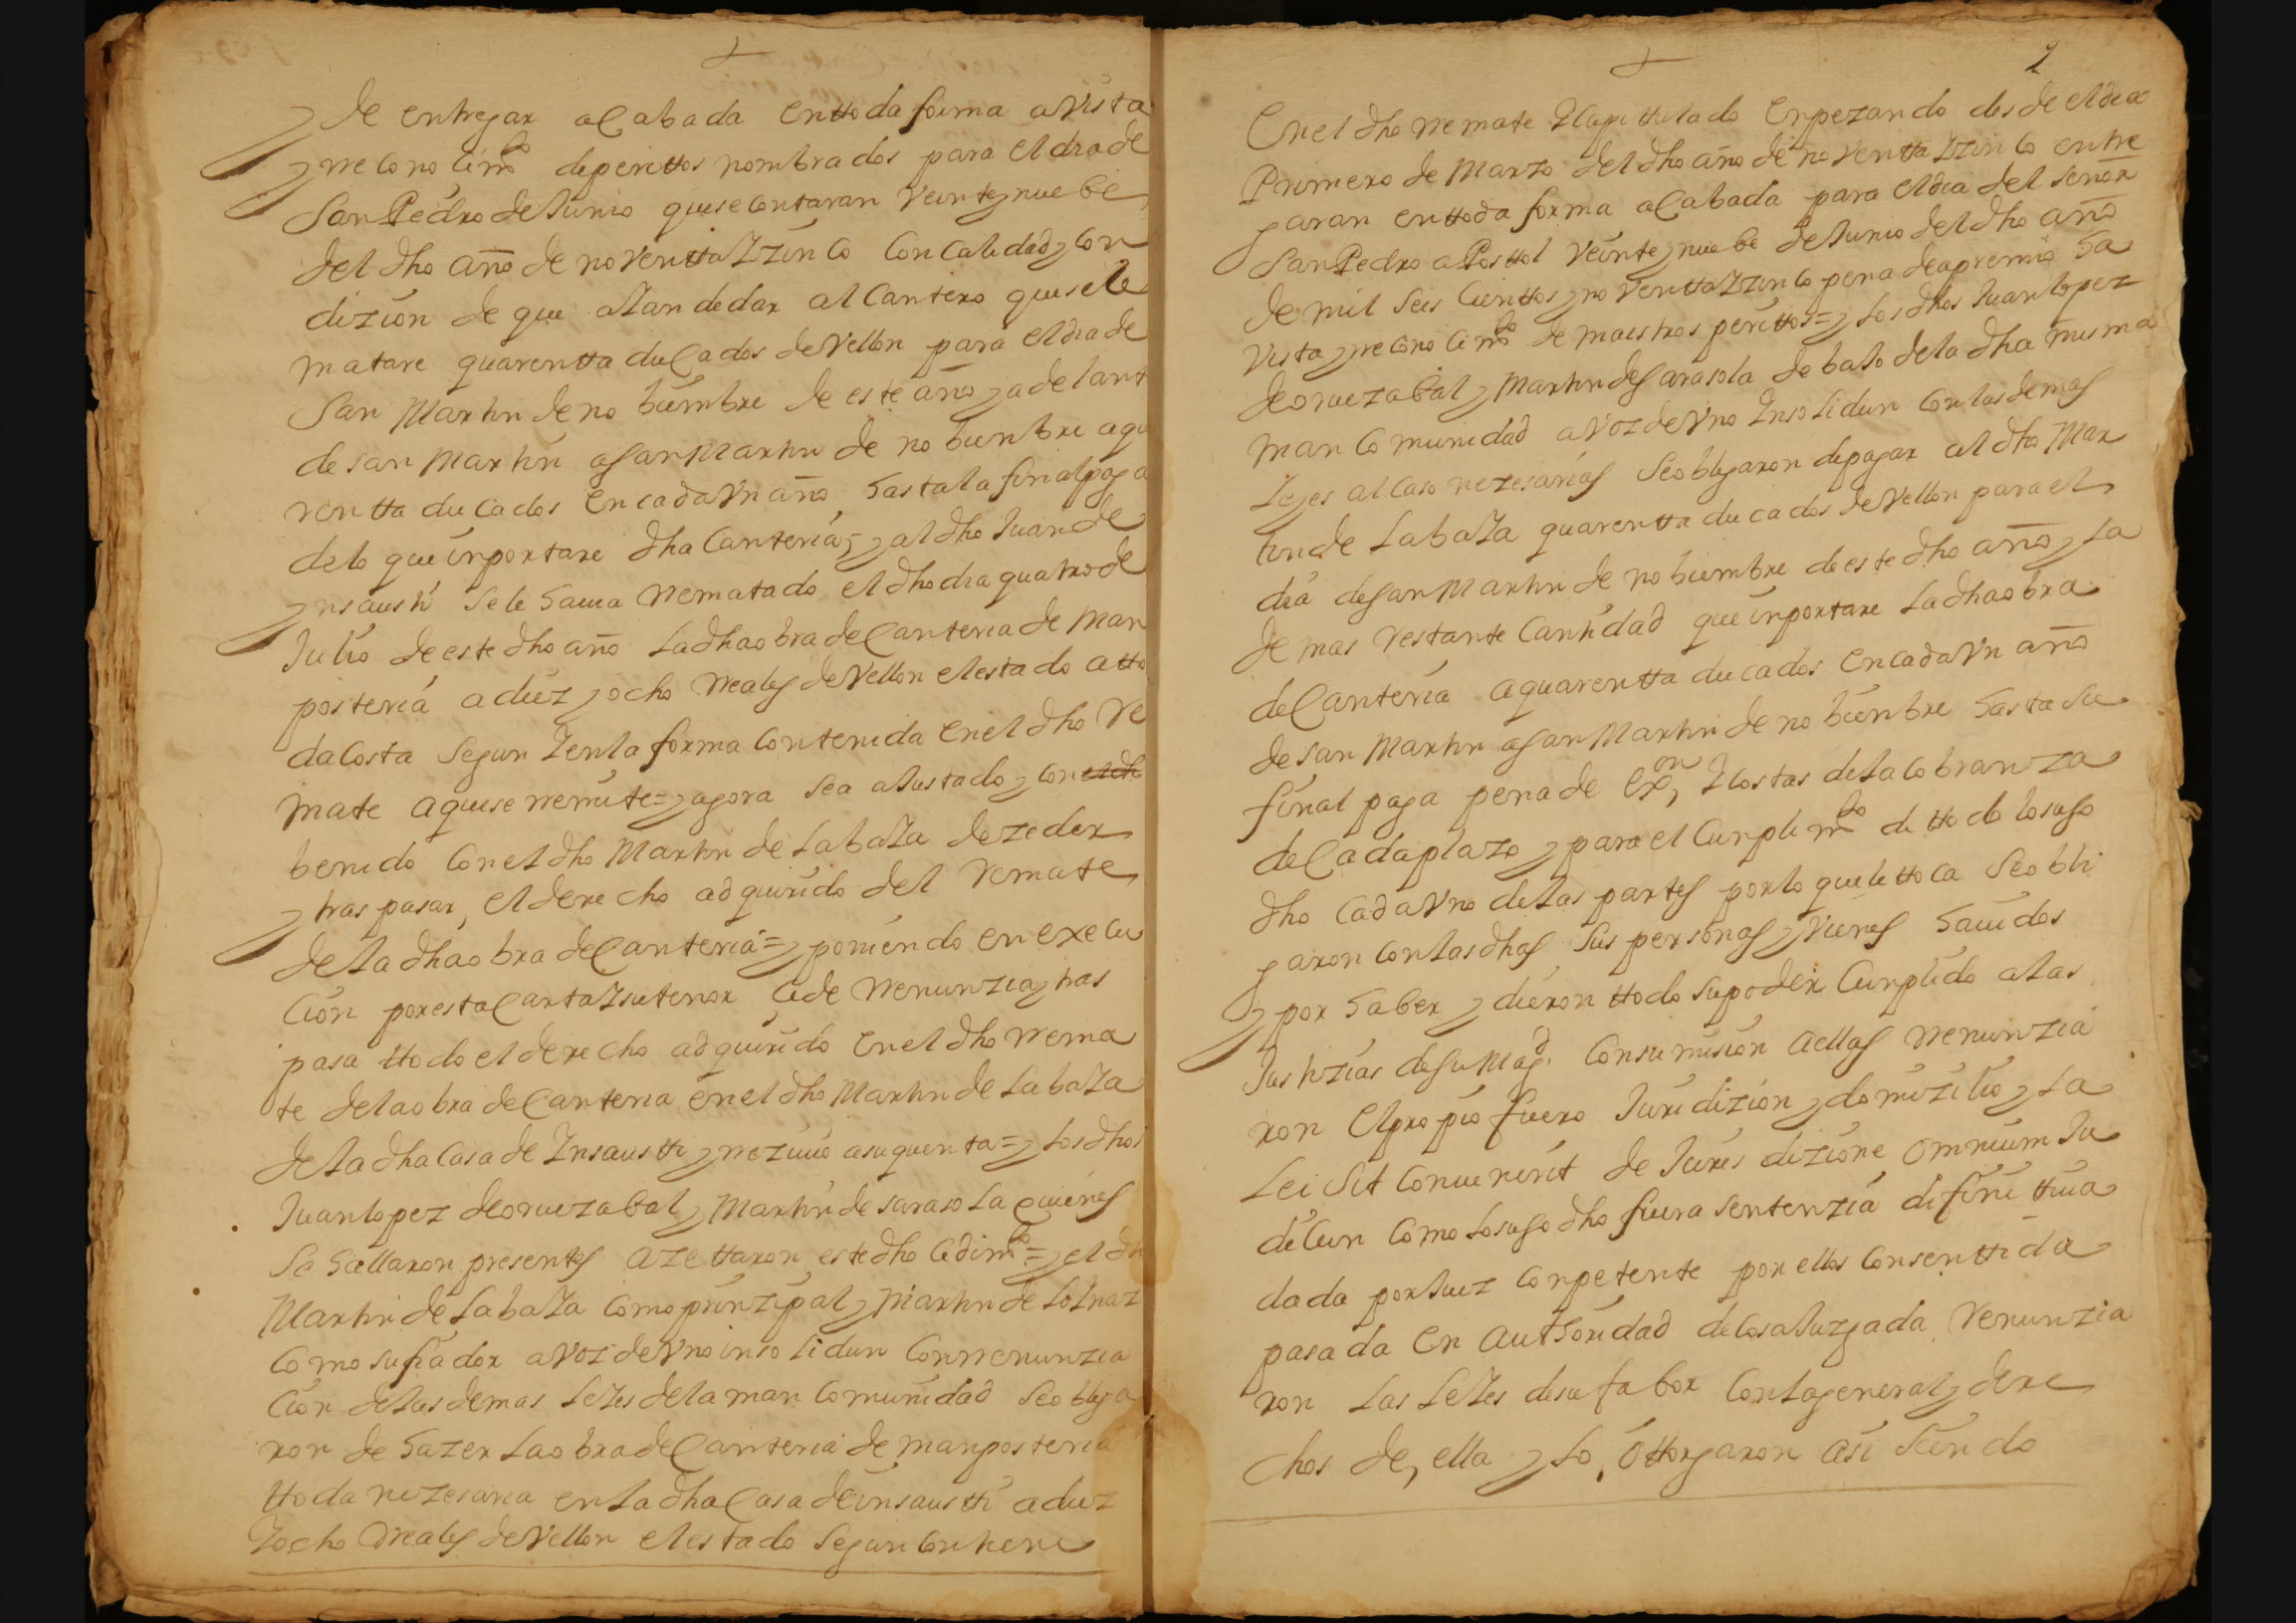 de entregar acabada enttoda forma a vista
y rreconocimto de perittos nombrados para el dia de
San Pedro de Junio que se contaran veinte y nuebe
del dho año de noventta y zinco con calidad y con
dizion de que aian de dar al cantero que se le
matare quarentta ducados de vellon para el dia de
San Martin de nobiembre de este año y adelant
de san Martin a san Martin de nobienbre a qua
rentta ducados en cada un año hasta la final paga
de lo que inportare dha canteria; y al dho Juan de
ynsausti se le hauia rrematado el dho dia quatro de
Julio de este dho año la dha obra de canteria de man
posteria a diez y ocho rreales de vellon el estado a tto
da costa segun y en la forma contenida en el dho re
mate a que se rremite= y agora sea ajustado y con
benido con el dho Martin de Labaza de zeder
y traspasar el derecho adquirido del remate
de la dha obra de canteria= y poniendo en execu
cion por esta carta y su tenor cede rrenunzia y tras
pasa ttodo el derecho adquirido en el dho rrema
te de la obra de canteria en el dho Martin de Labaza
de la dha casa de Insaustti y rrezivio a su quenta= y los dhos
Juan lopez de oruezabal y Martin de sarasola quienes
se hallaron presentes azettaron este dho cedimto= y el dh
Martin de Labaza como prinzipal y Martin de
como su fiador a voz de uno insolidun con rrenunzia
cion de las demas leies de la mancomunidad se obliga
ron de hazer la obra de canteria de manposteria
ttoda nezesaria en la dha casa de insaustti a diez
y ocho rreales de vellon el estado segun contiene
2
En el dho rremate y capittulado enpezando desde el dia
Primero de Marzo del dho año de noventta y zinco entre
garan enttoda forma acabada para el dia del señor
San Pedro apostol veinte y nuebe de Junio del dho año
de mil seis cienttos y noventta y zinco pena de apremio ha
vista y rreconocimto de maestros perittos= y los dhos Juan lopez
de oruezabal y Martin de sarasola debajo de la dha misma
mancomunidad a voz de uno insolidun con las demas
leyes al caso nezesarias se obligaron de pagar al dho Mar
tin de Labaza quarentta ducados de vellon para el
dia de san Martin de nobiembre de este dho año y la
demas restante cantidad que inportare la dha obra
de canteria a quarentta ducados en cada un año
de san Martin a san Martin de nobienbre hasta su
final paga pena de exon, y costas de la cobranza
de cada plazo y para el cunplimto de ttodo lo suso
dho cada uno de las partes por lo que le ttoca se obli
garon con las dhas sus personas y vienes hauidos
y por haber y dieron ttodo su poder cunplido a las
Justizias de su Magd. con sumision a ellas rrenunzia
ron el propio fuero Juridizion y domizilio y la
lei sit conuenerit de Juris dizione omnium Ju
dicun como lo suso dho fuera sentenzia difinittiua
dada por Juez conpetente por ellos consenttida
pasada en authoridad de cosa Juzgada renunzia
ron las leies de su fabor con la general y dere
chos de, ella y lo, ottorgaron asi siendo